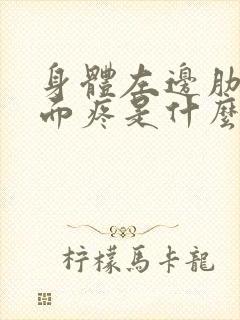 身體左邊肋
而疼是什麼
柠檬馬卡龍